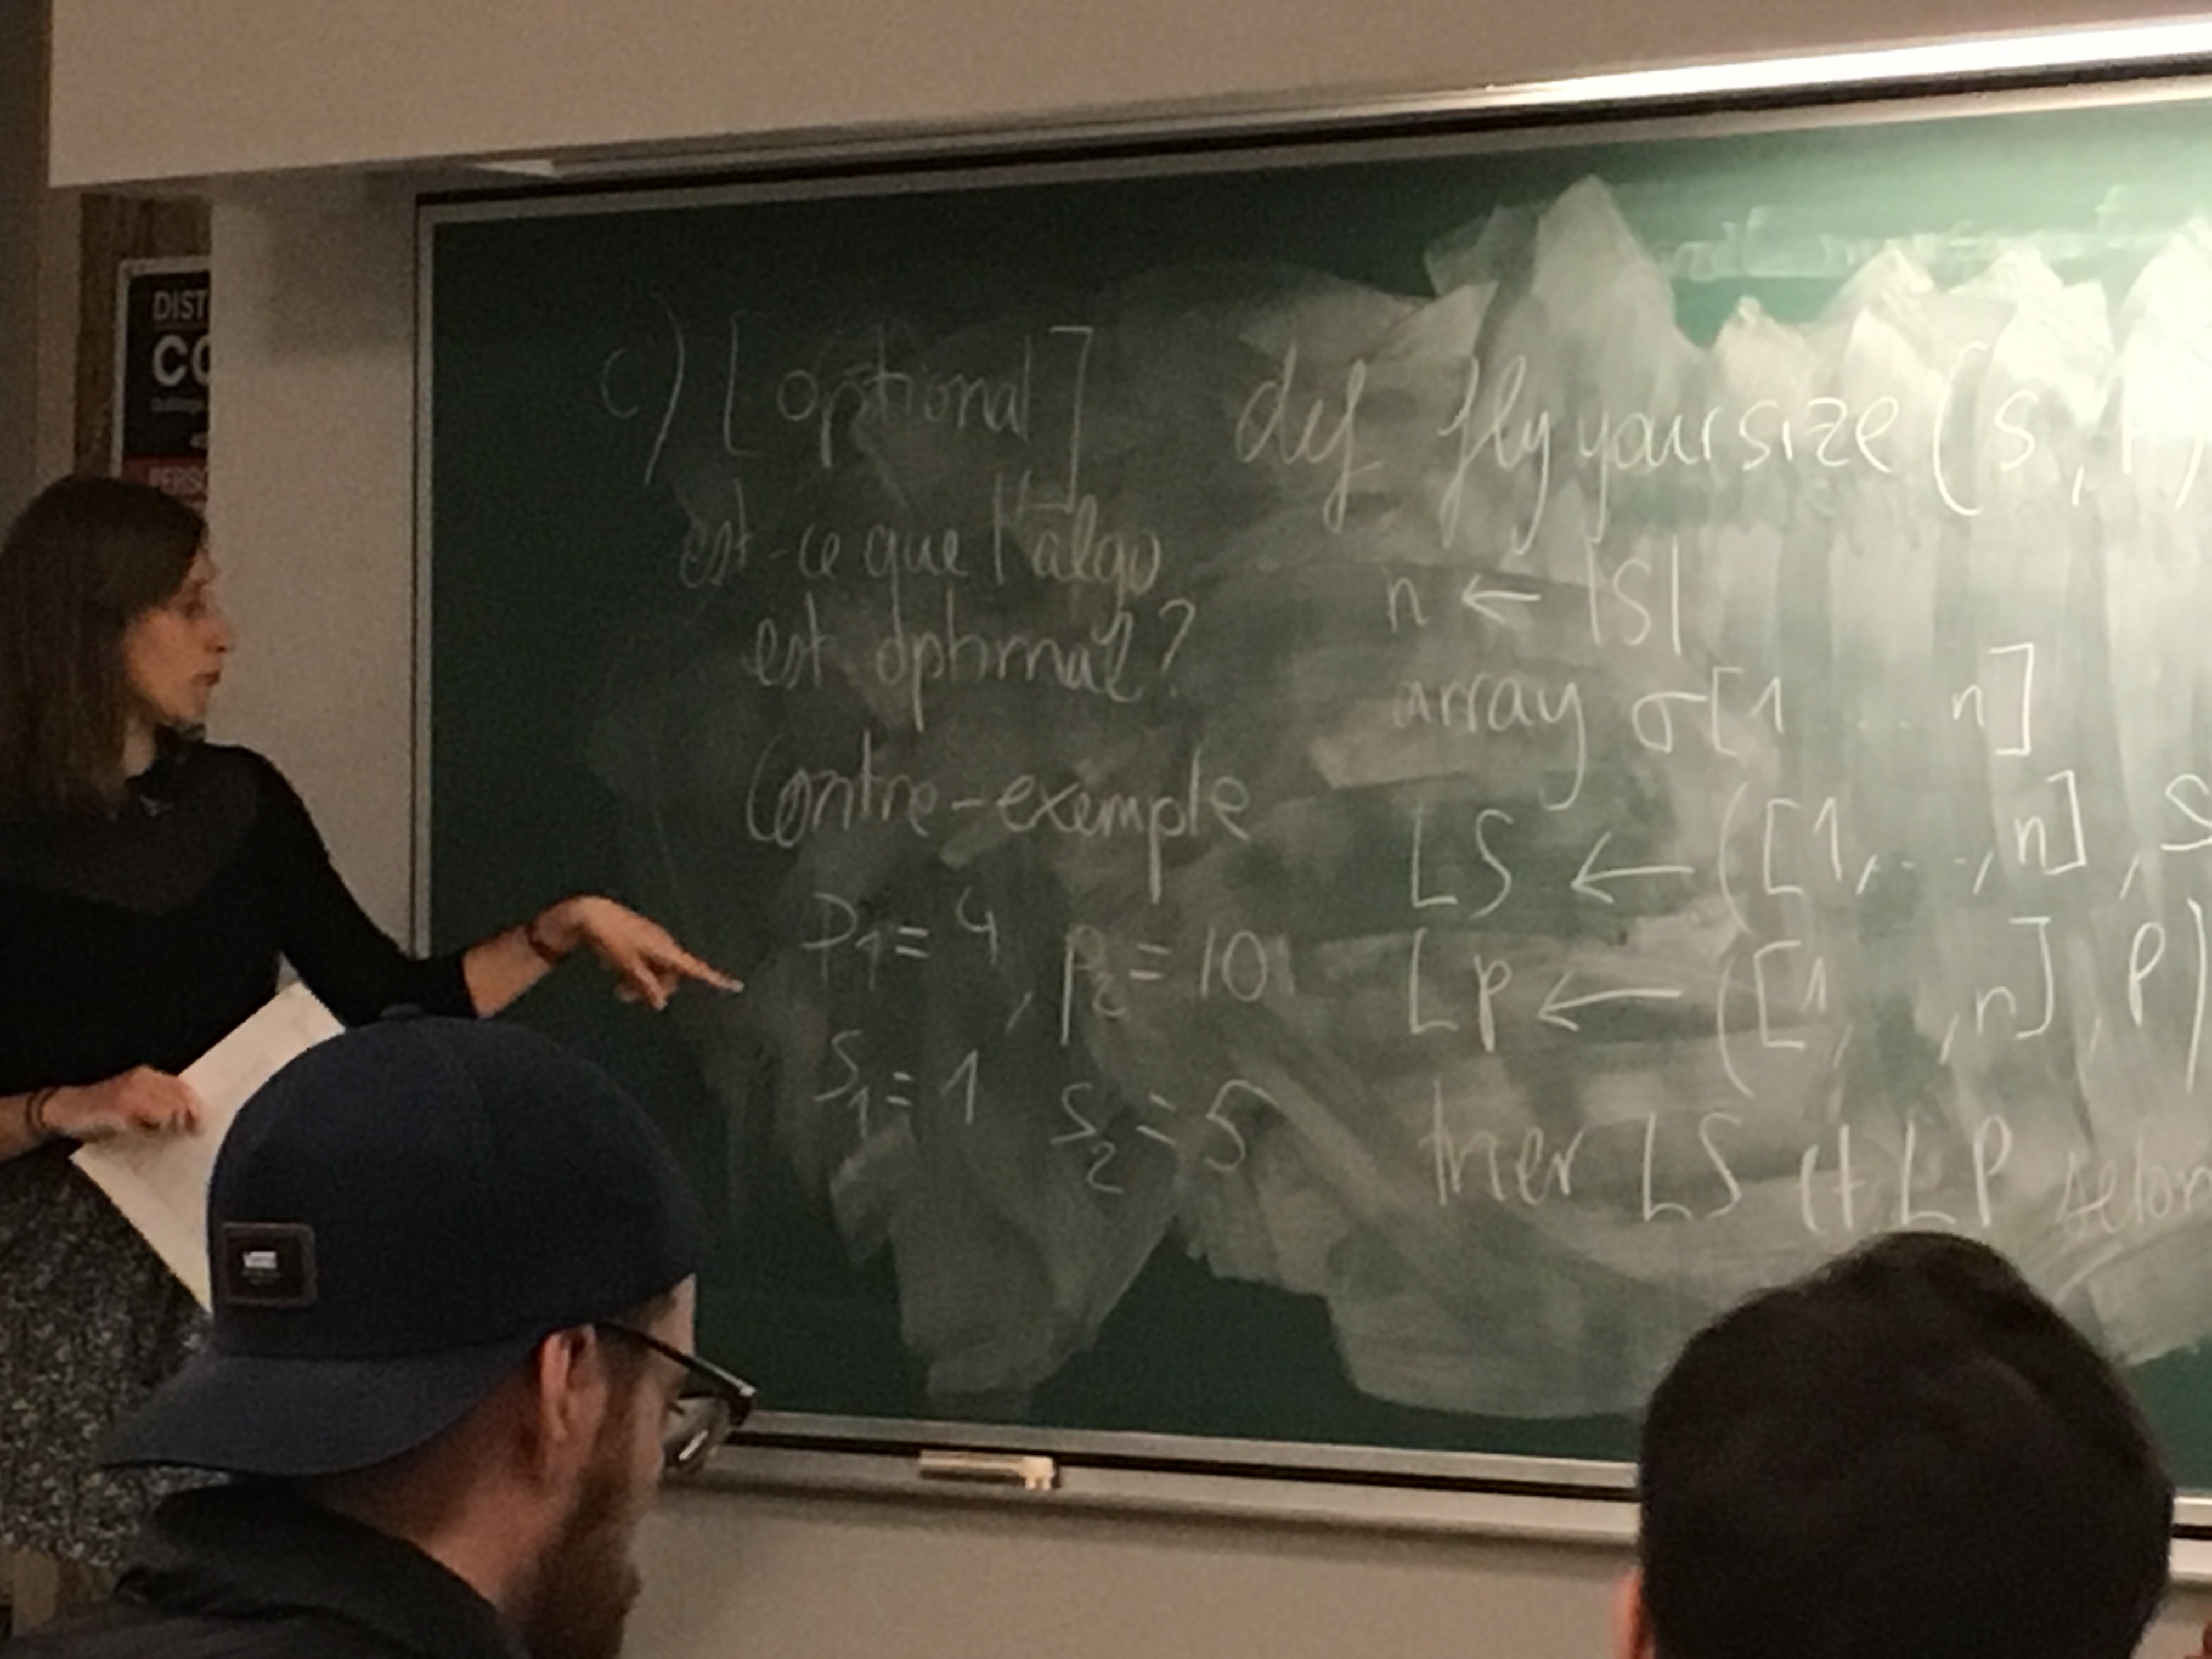 DIST
CO
PERSO
c) [optional]
est-ce que l'algo
est optimal?
Contre-exemple
P1 = 4, p2 = 10
S1 = 1 S2 = 5
def flyyoursize(S,
n ← |S|
array σ[1 ... n]
LS ← ([1,...,n], S
LP ← ([1, ,n], P)
trier LS et LP selon